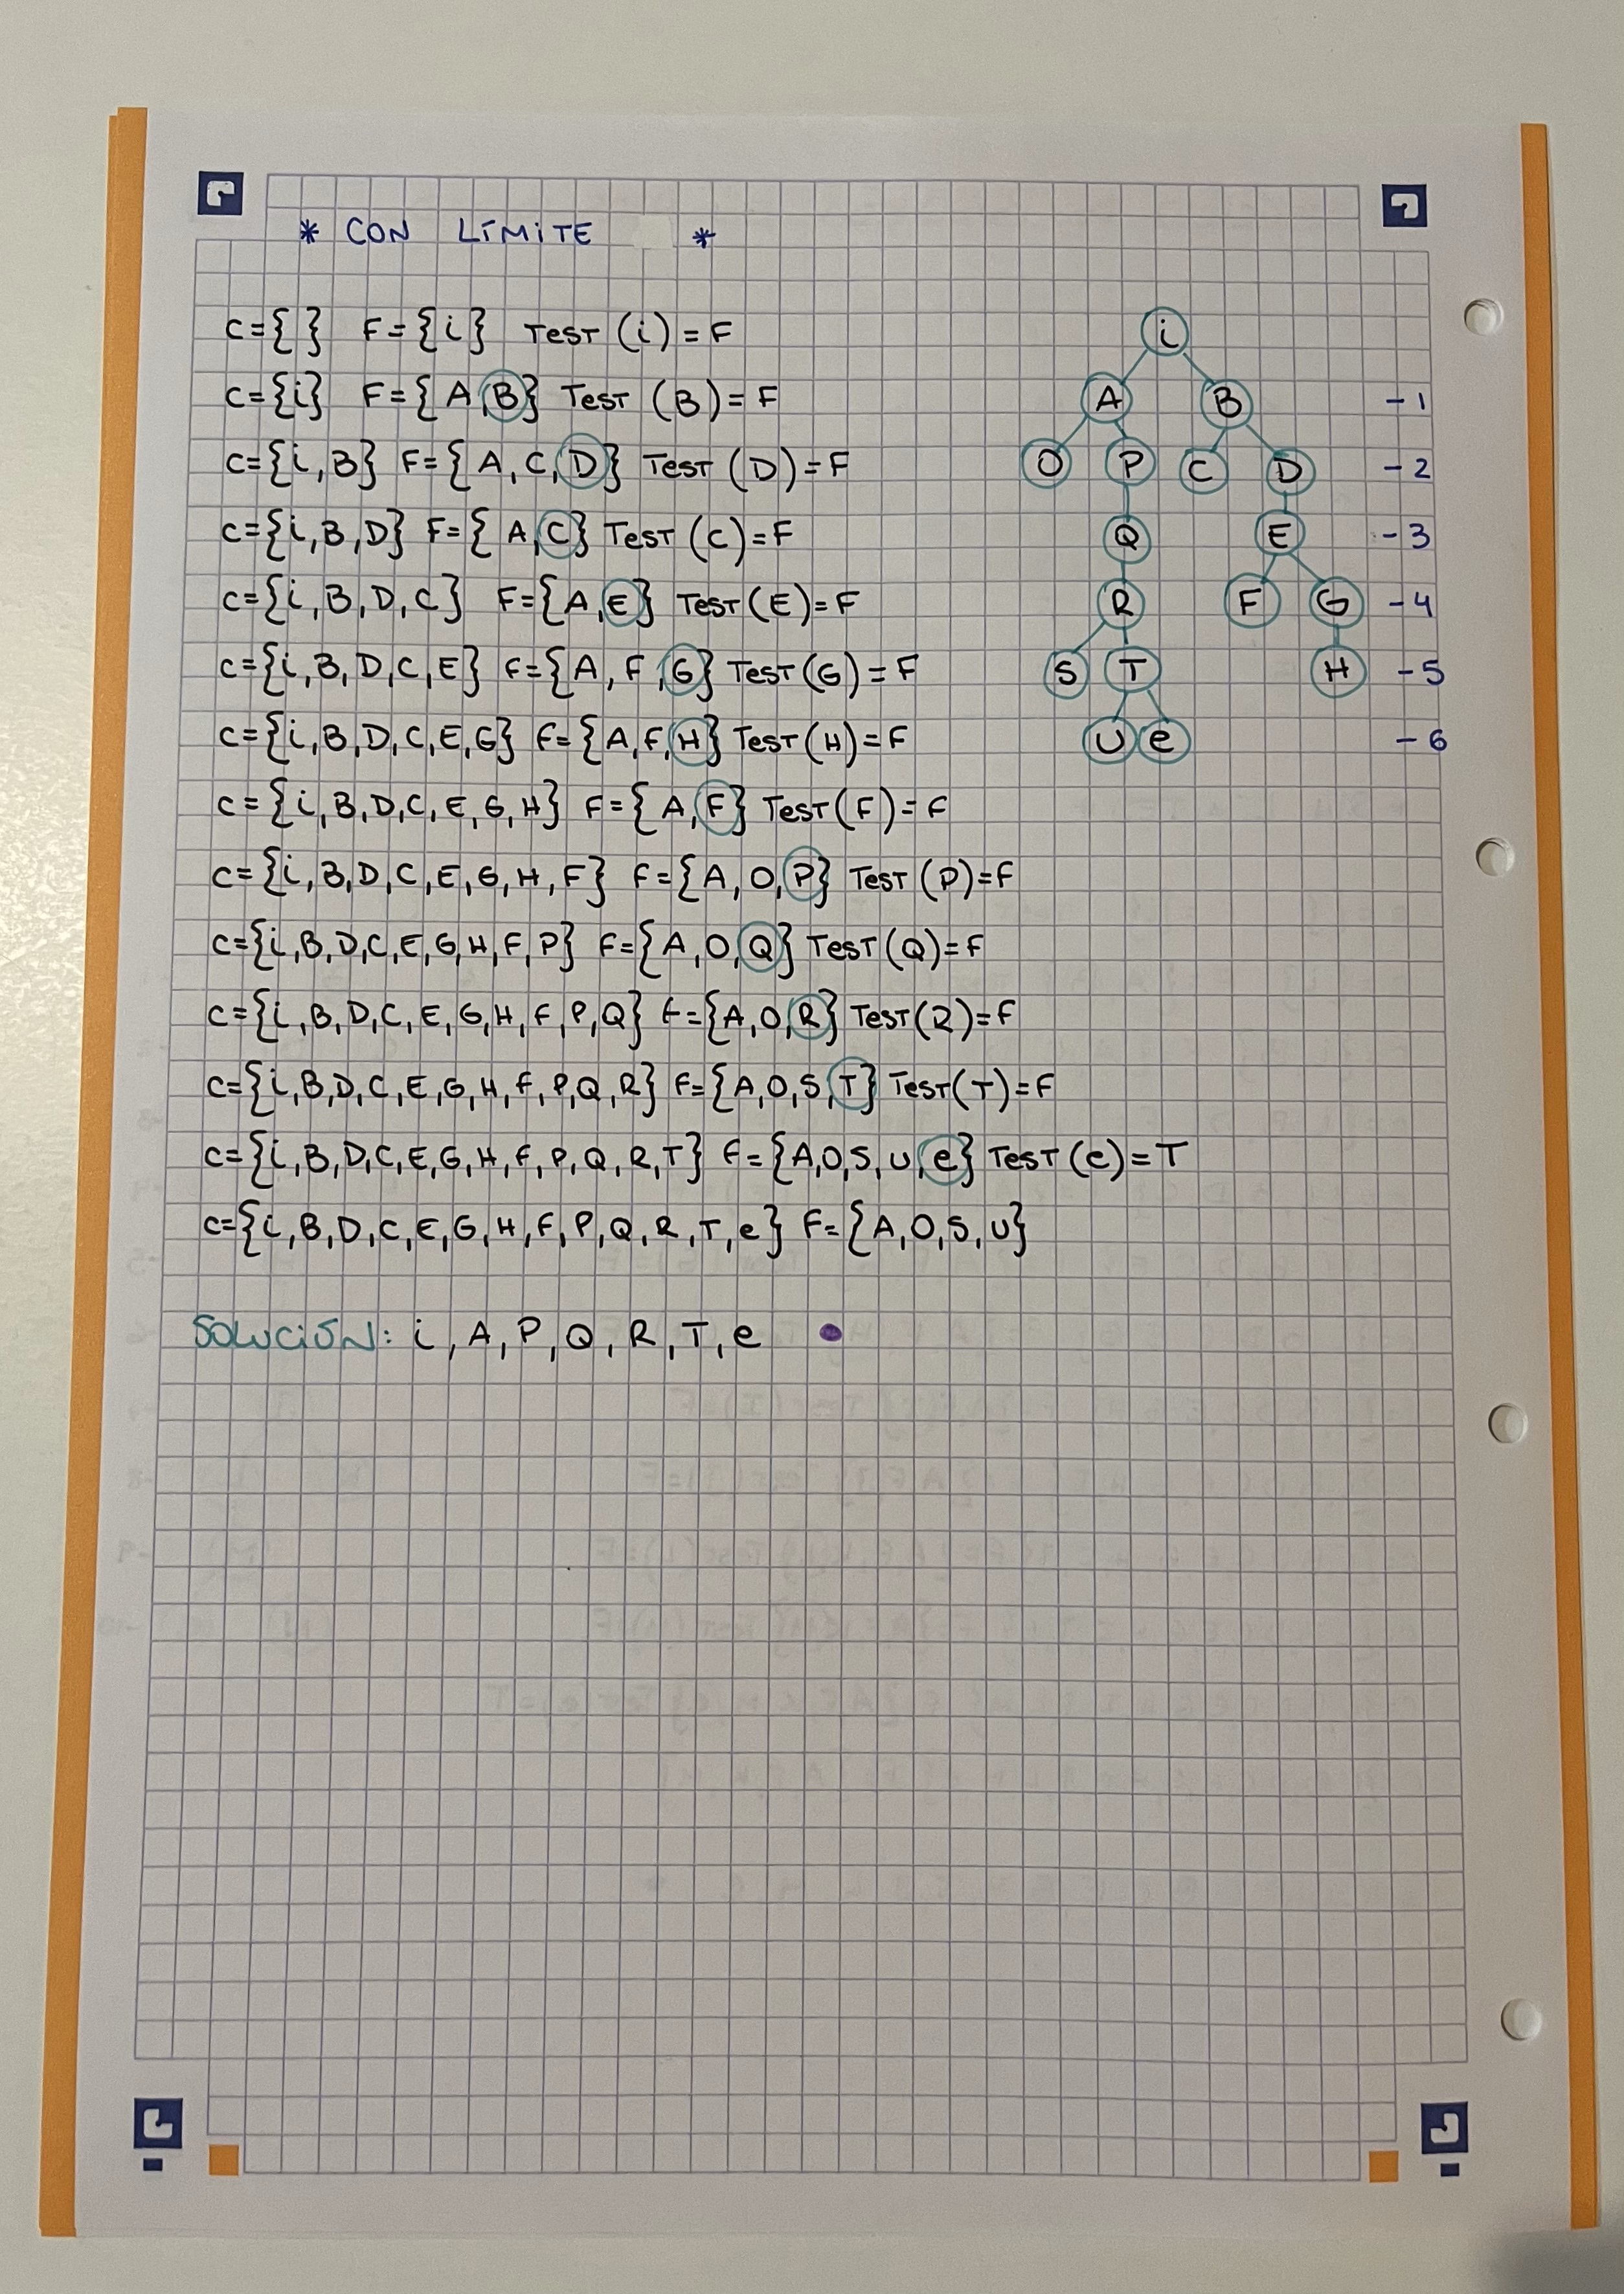 * CON LÍMITE *
C={ } F={i} TEST (i) = F
C={i} F={A,B} TEST (B) = F
C={i,B} F={A,C,D} TEST (D) = F
C={i,B,D} F={A,C} TEST (C) = F
C={i,B,D,C} F={A,E} TEST (E) = F
C={i,B,D,C,E} F={A,F,G} TEST (G) = F
C={i,B,D,C,E,G} F={A,F,H} TEST (H) = F
C={i,B,D,C,E,G,H} F={A,F} TEST (F) = F
C={i,B,D,C,E,G,H,F} F={A,O,P} TEST (P) = F
C={i,B,D,C,E,G,H,F,P} F={A,O,Q} TEST (Q) = F
C={i,B,D,C,E,G,H,F,P,Q} F={A,O,R} TEST (R) = F
C={i,B,D,C,E,G,H,F,P,Q,R} F={A,O,S,T} TEST (T) = F
C={i,B,D,C,E,G,H,F,P,Q,R,T} F={A,O,S,U,e} TEST (e) = T
C={i,B,D,C,E,G,H,F,P,Q,R,T,e} F={A,O,S,U}
SOLUCIÓN: i, A, P, Q, R, T, e
i
A B -1
O P C D -2
Q E -3
R F G -4
S T H -5
U e -6